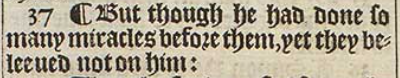 37 ¶ But though he had done ſo
many miracles before them, yet they be-
leeued not on him: